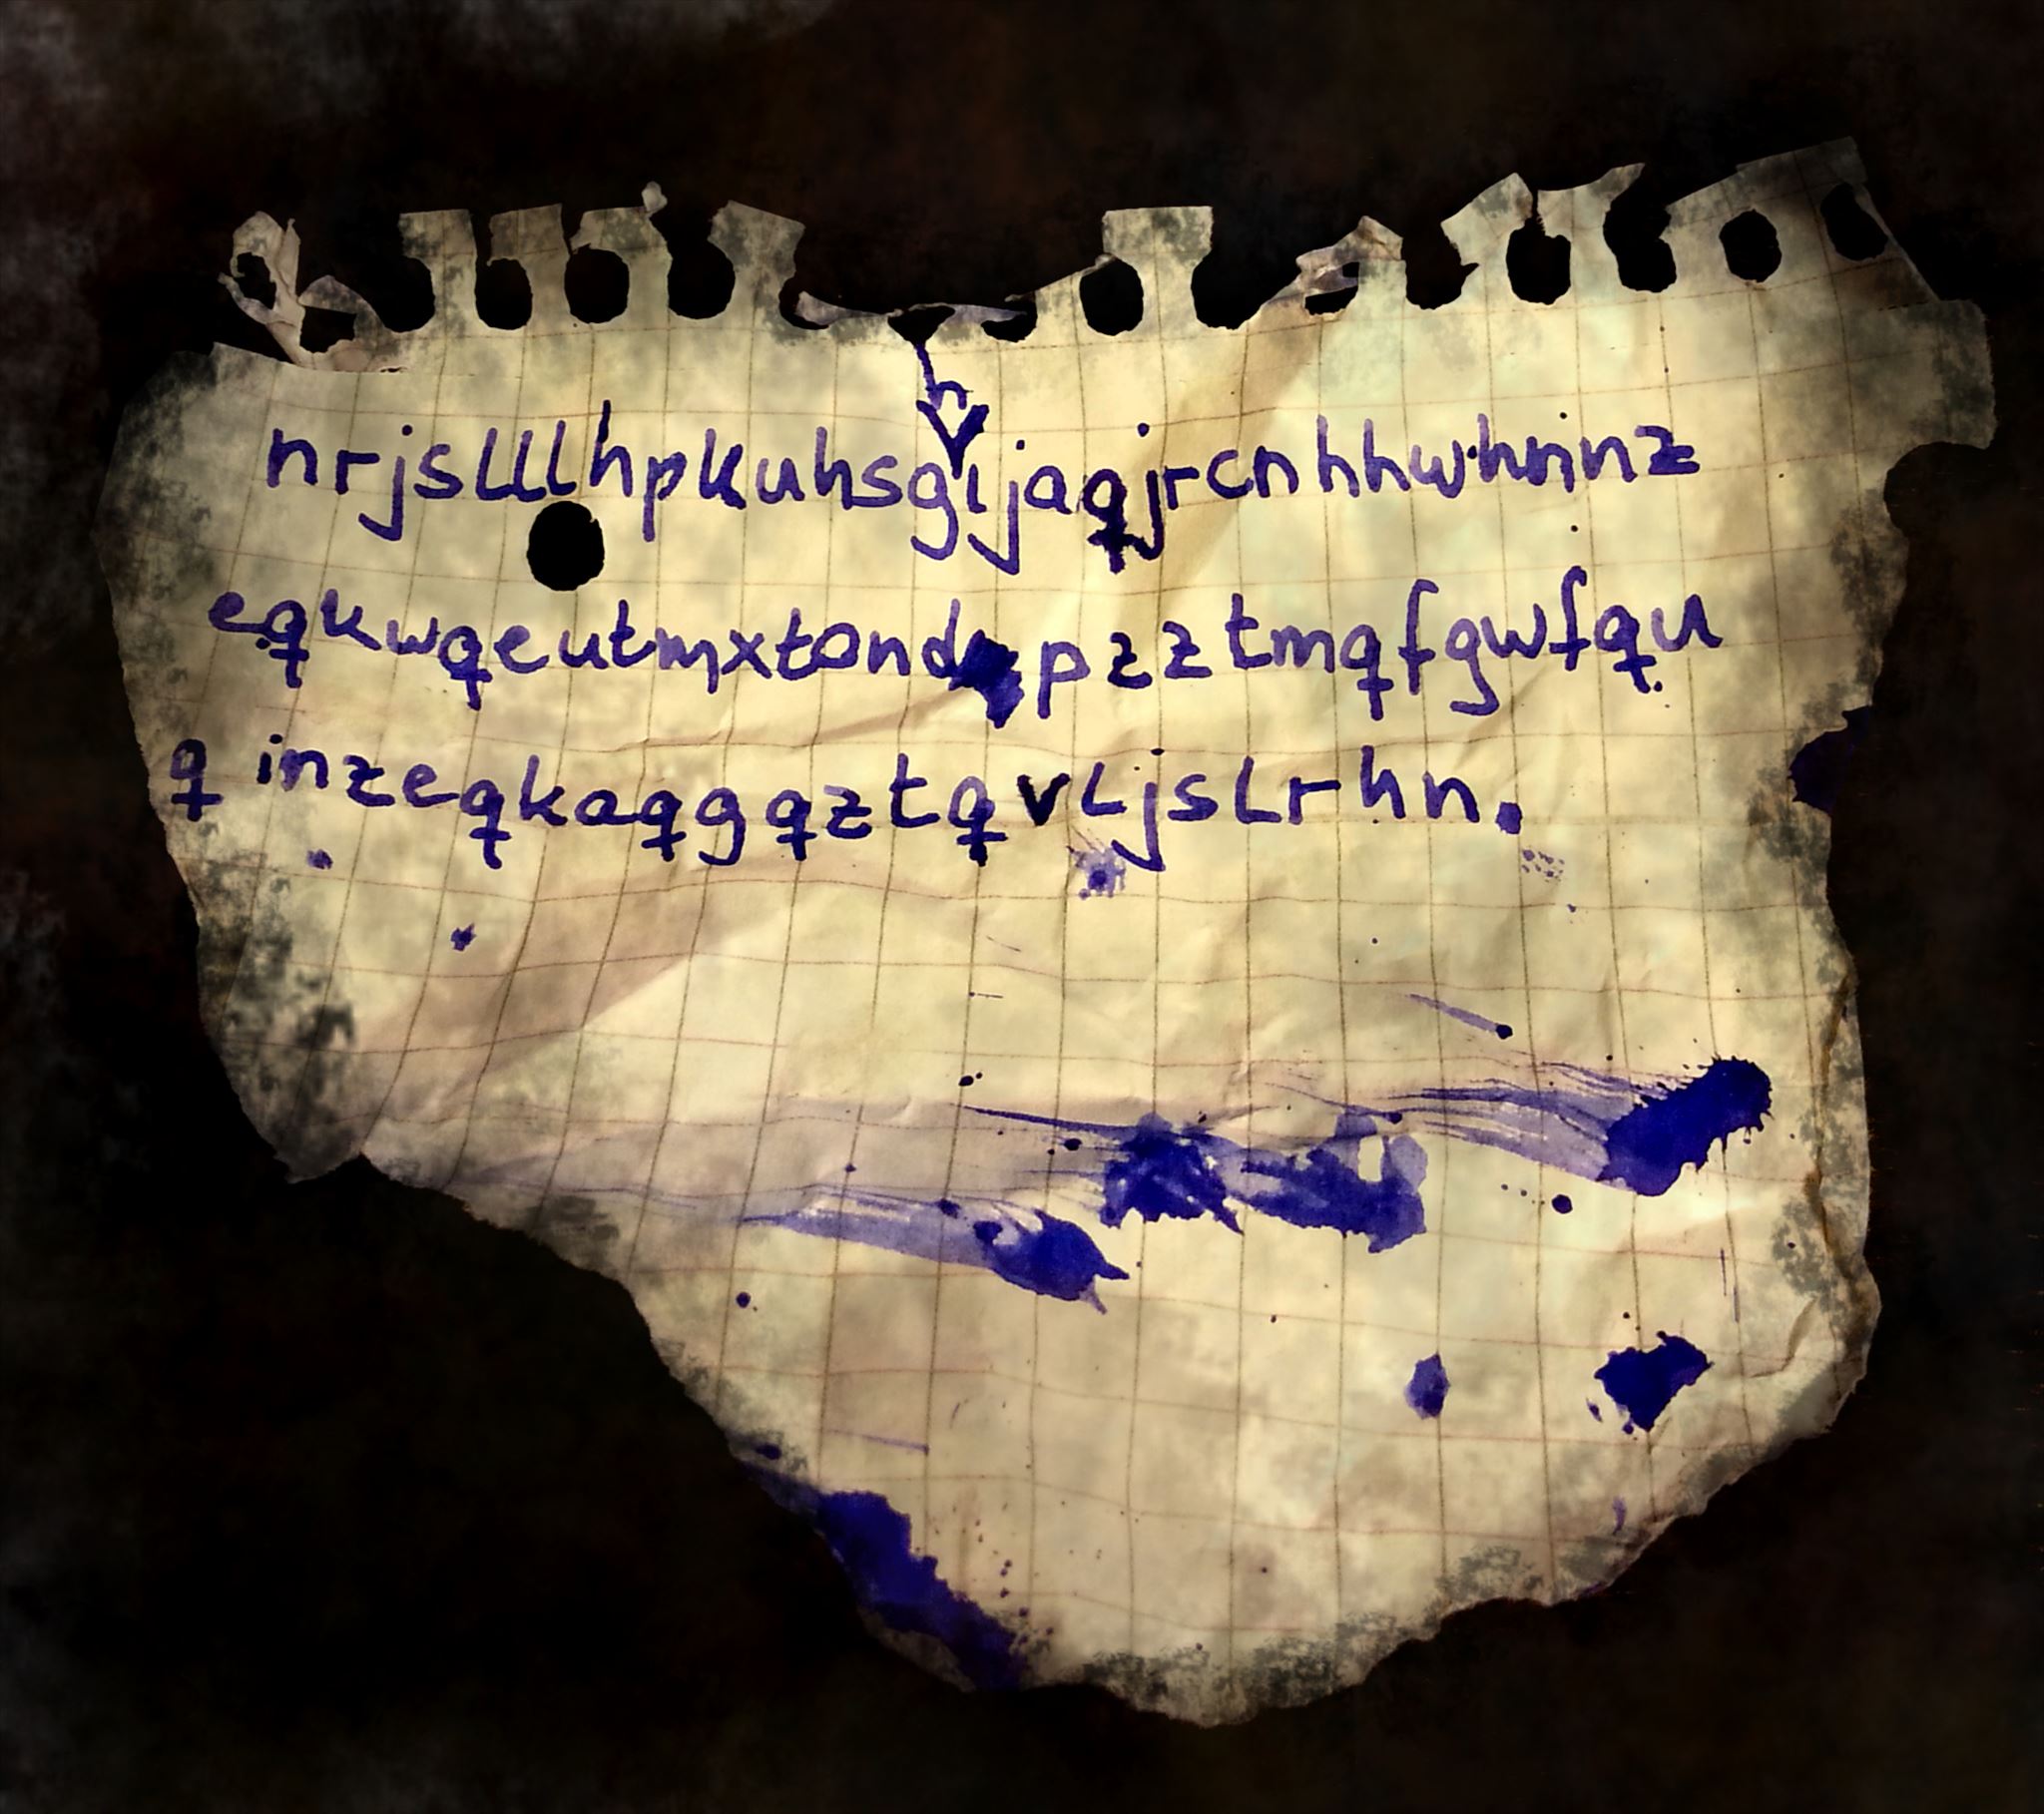 nrjslllhpkuhsghijaqjrcnhhwhninz
eqkwqeutmxtondpzztmqfgwfqu
q inzeqkaqgqztqvljslrhn.